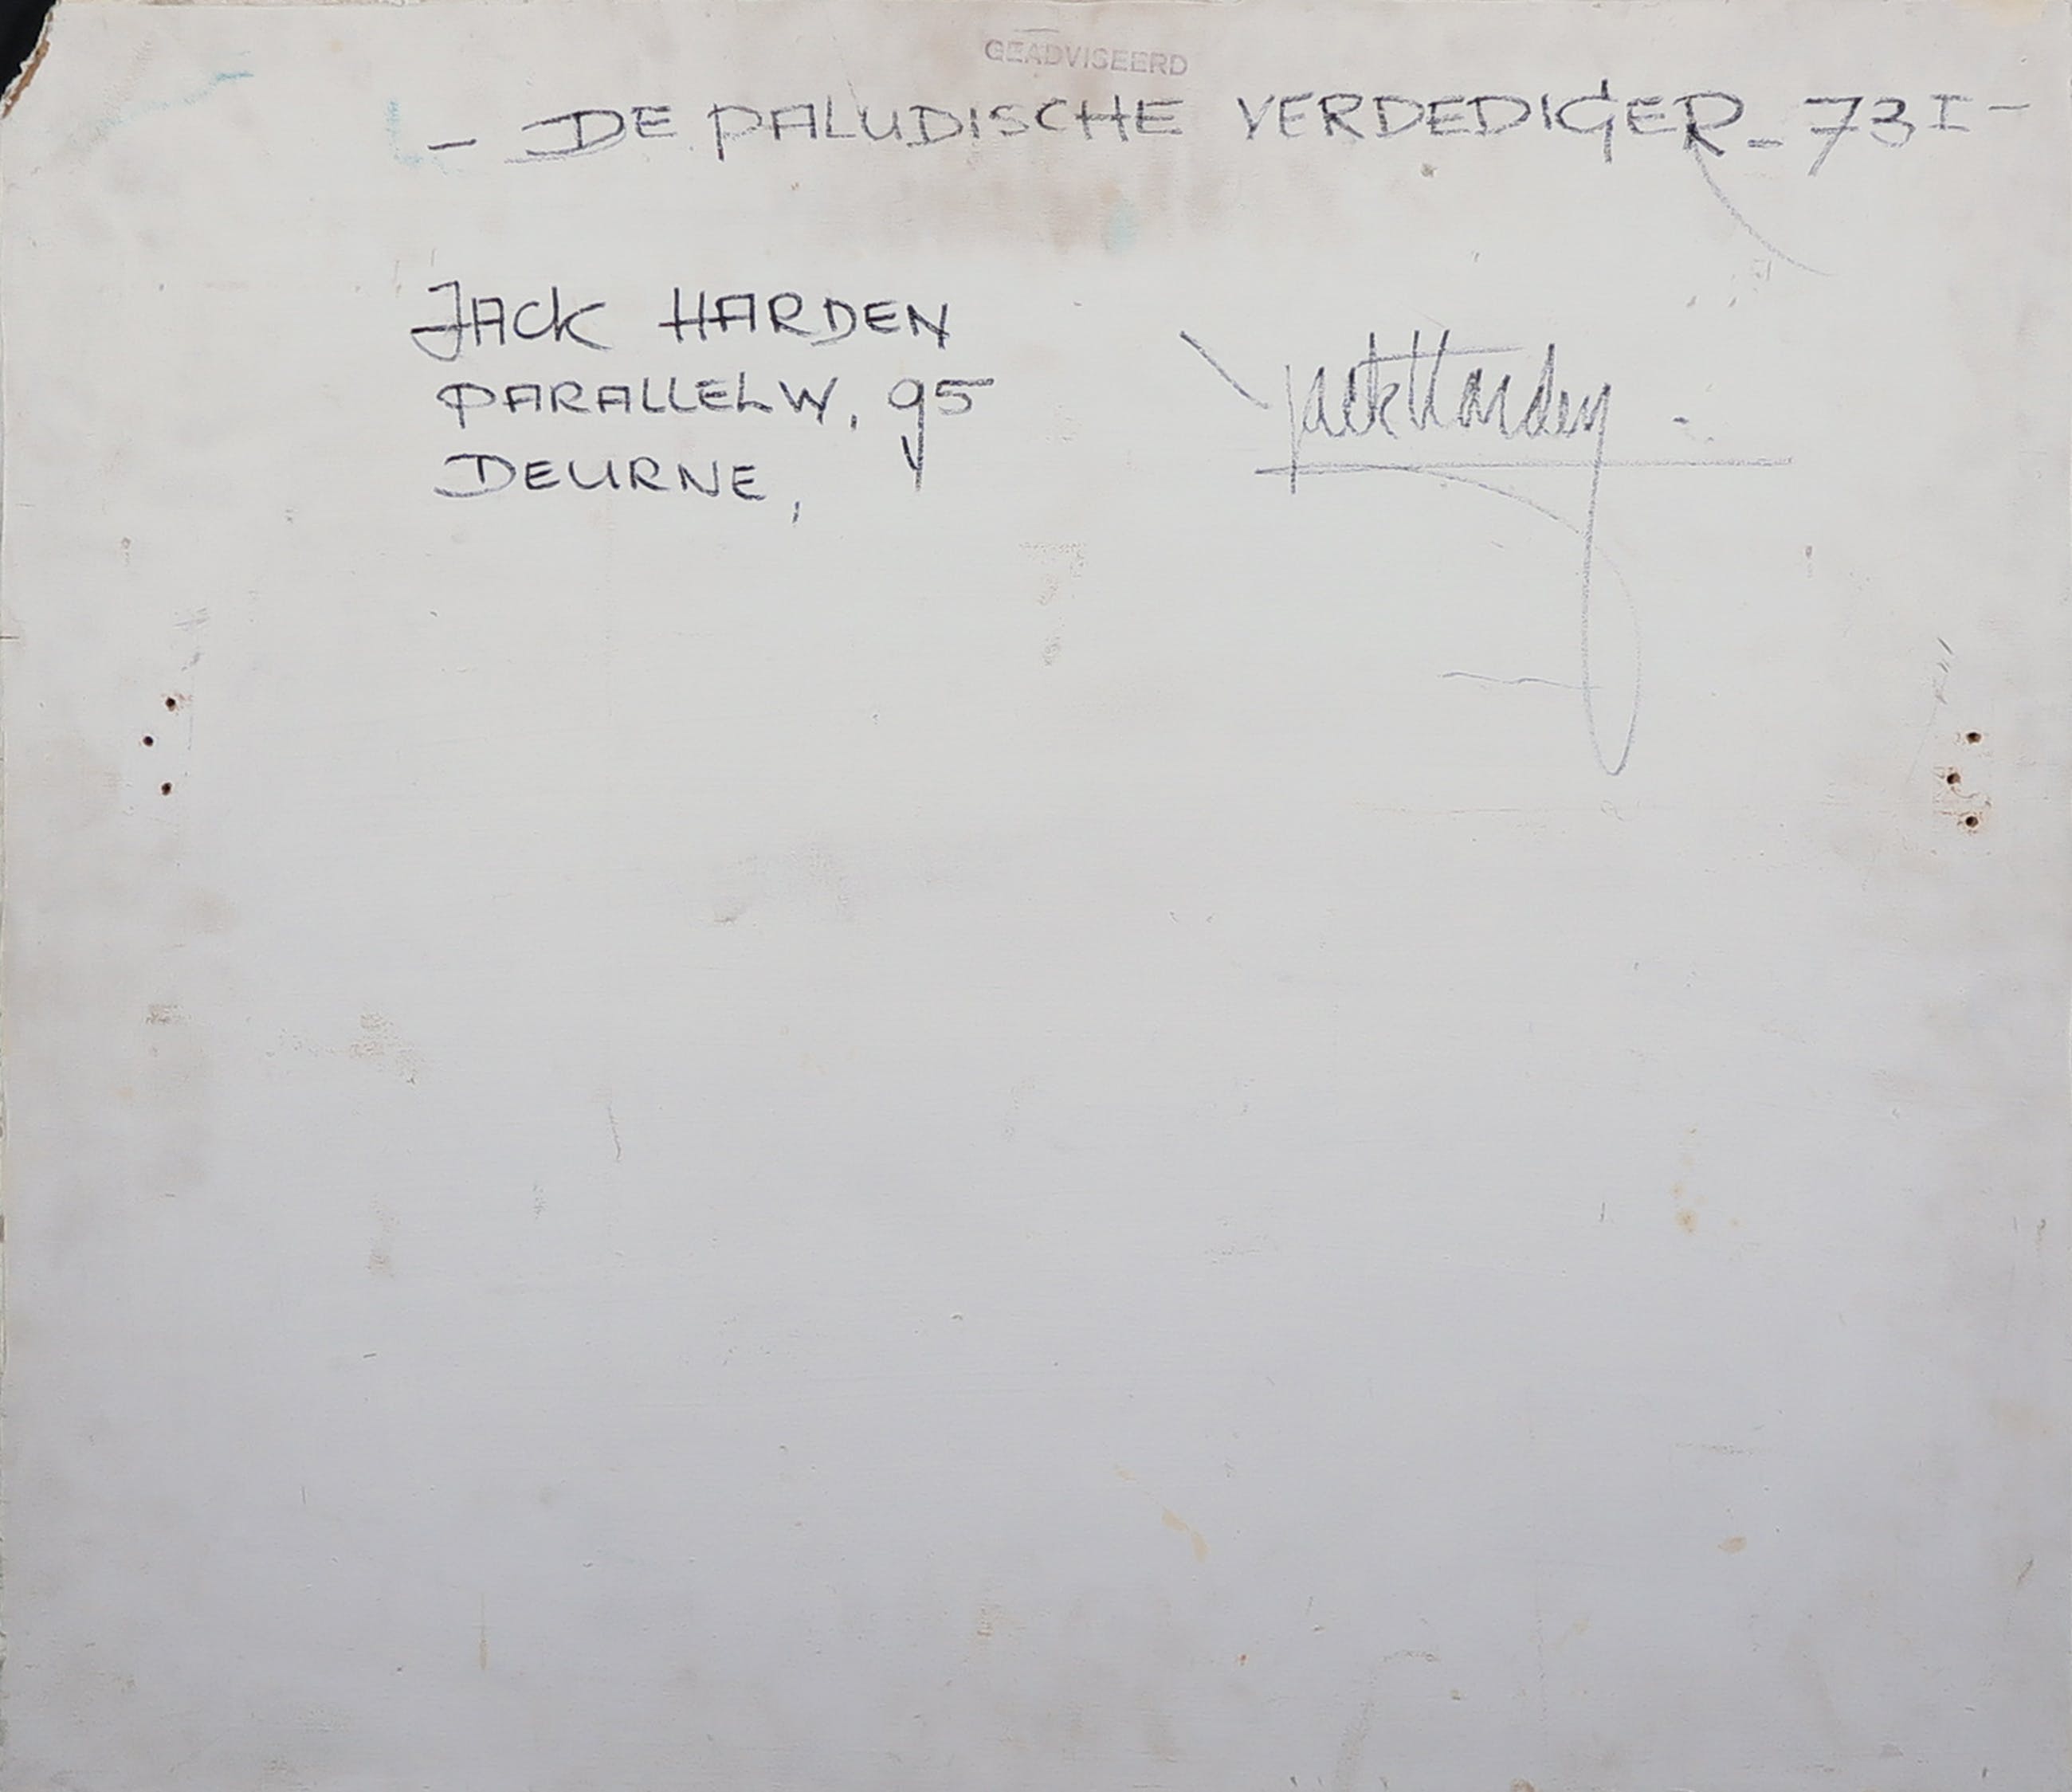 GEADVISEERD
- DE PALUDISCHE VERDEDIGER - 73 I -
JACK HARDEN
PARALLELW, 95
DEURNE,
Jack Harden